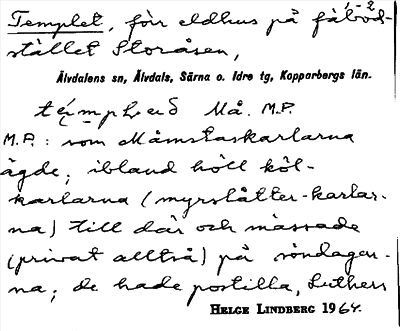 Templet, förr eldhus på fäbod-
stället Storåsen,
Älvdalens sn, Älvdals, Särna o. Idre tg, Kopparbergs län.
Må. M.P.
M.P.: som Måmstaskarlarna
ägde; ibland höll köl-
karlarna (myrslåtter-karlar-
na) till där och mässade
(privat alltså) på söndagar-
na; de hade postilla, Luthers
HELGE LINDBERG 1964.